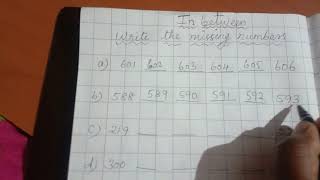 In between
Write the missing numbers
a) 601 602 603 604 605 606
b) 588 589 590 591 592 593
c) 219
d) 300